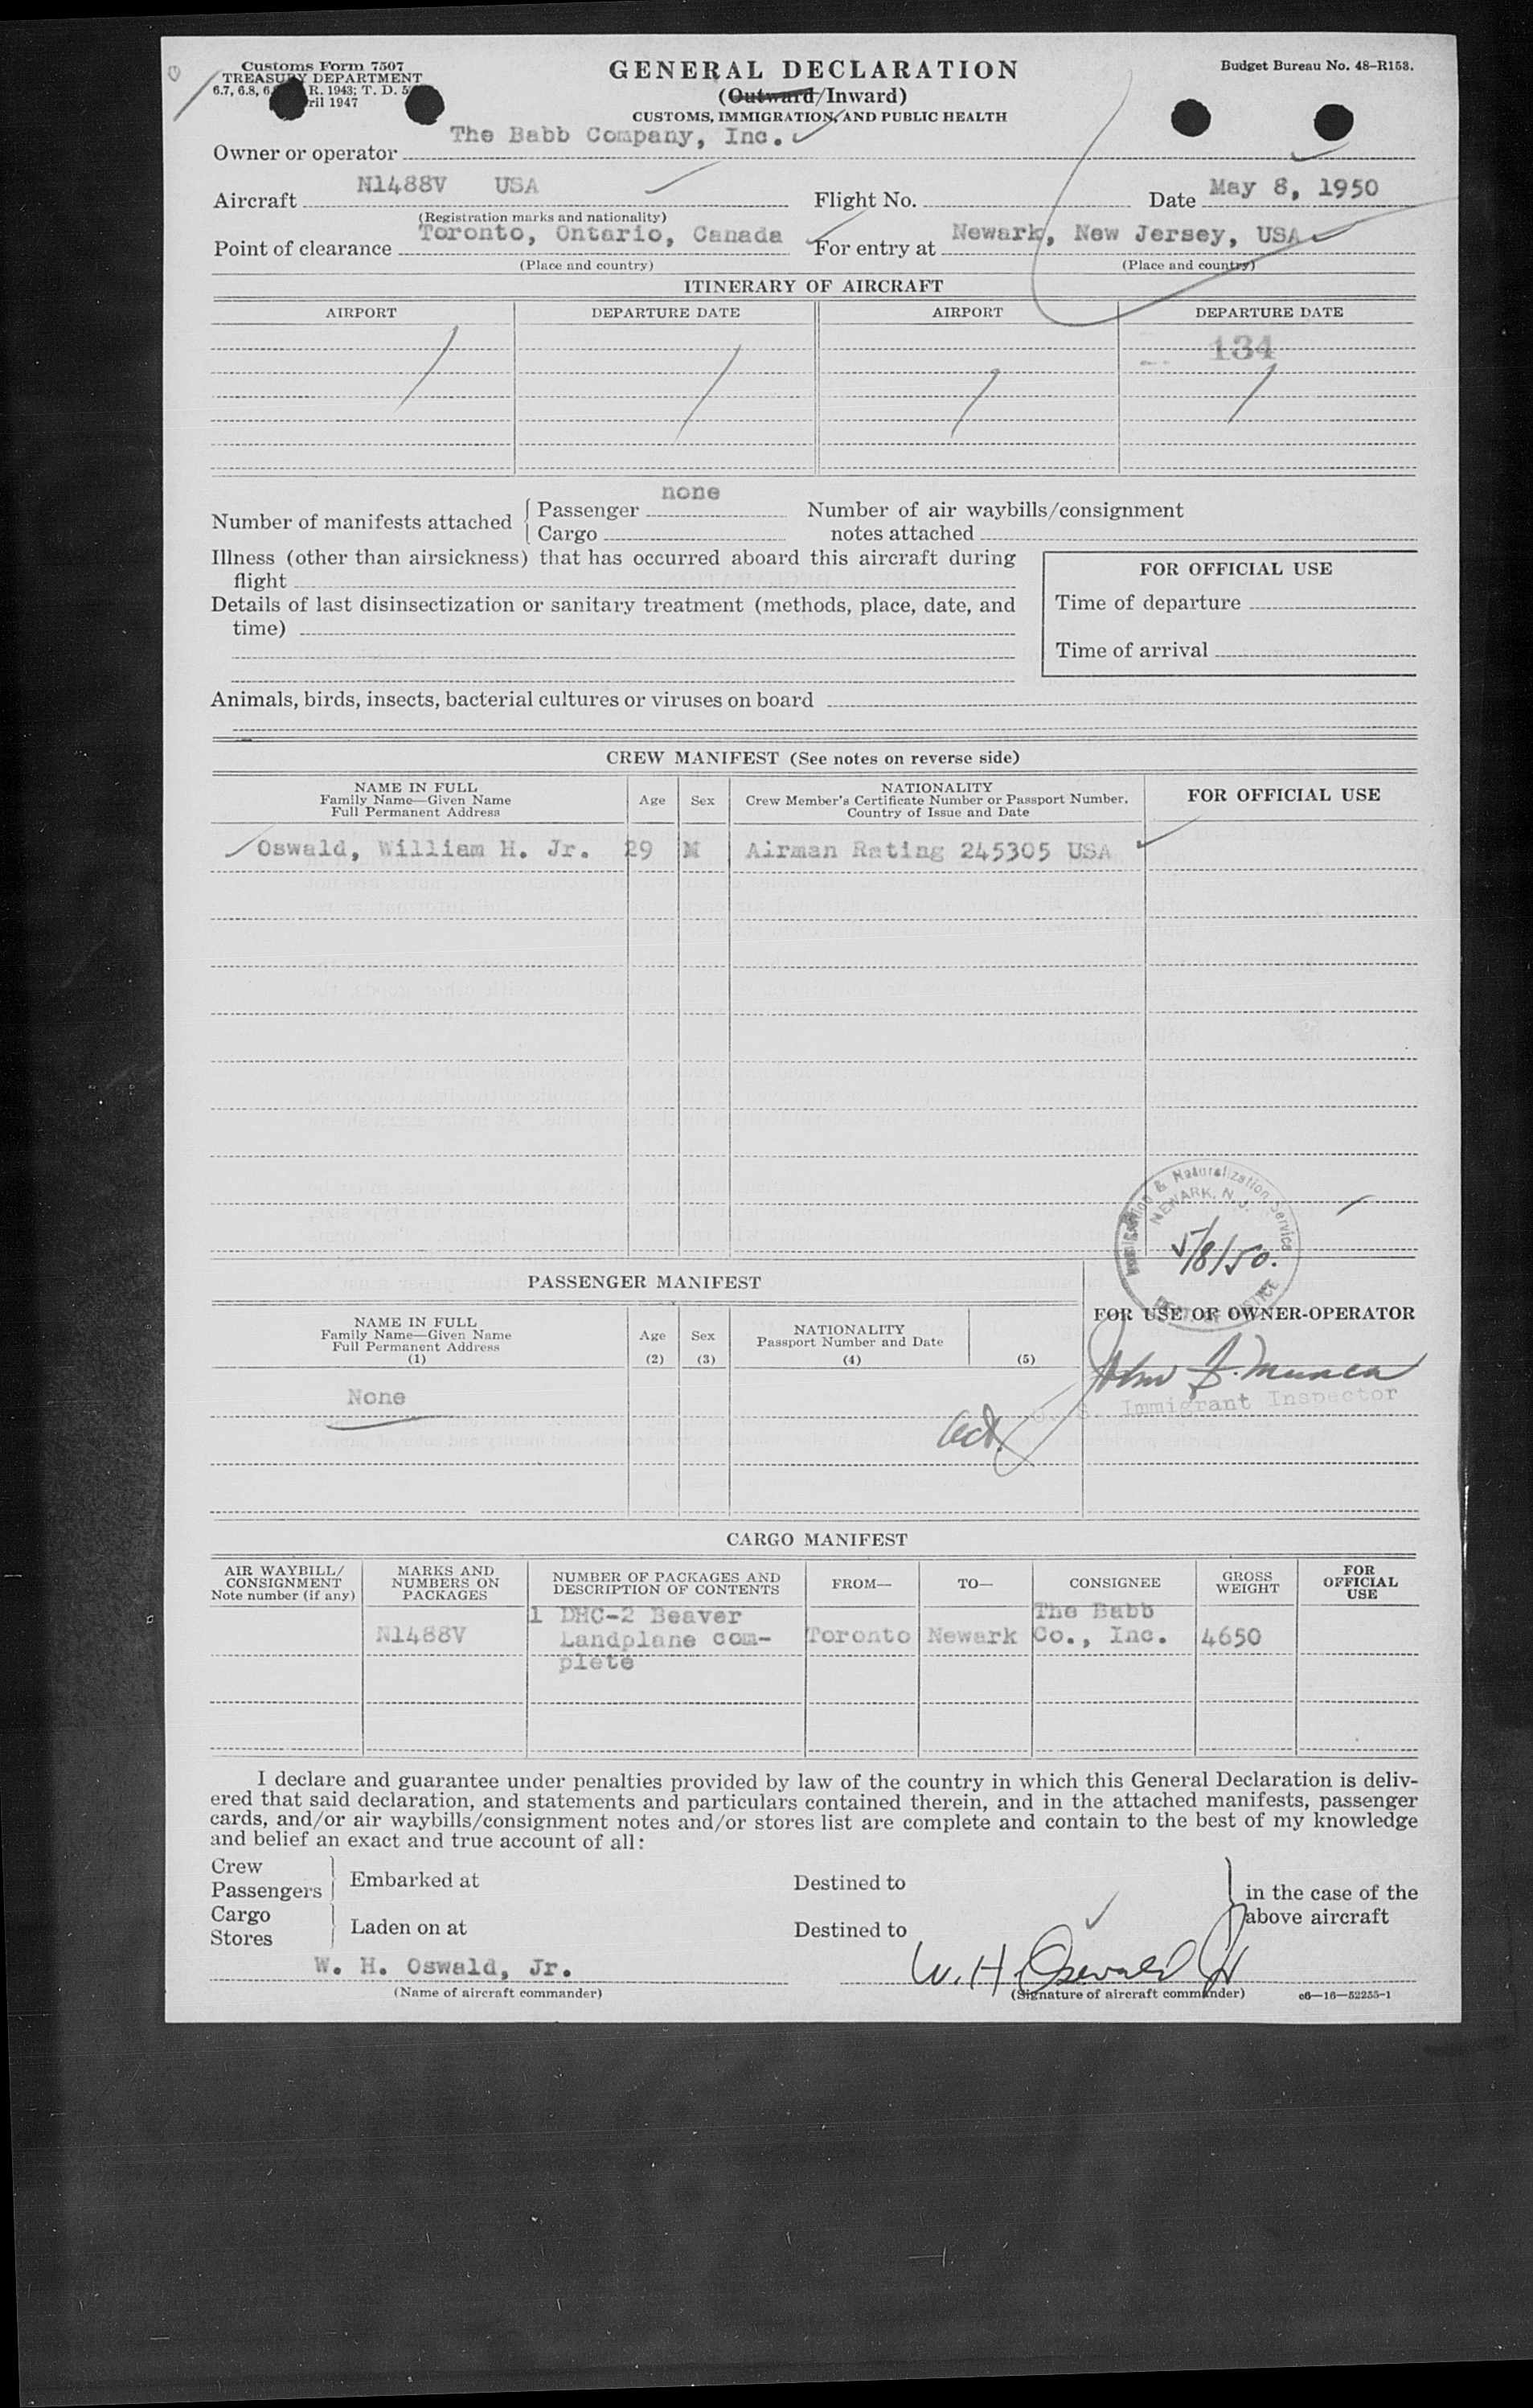 Customs Form 7507
TREASURY DEPARTMENT
6.7, 6.8, R. 1943; T. D.
1947
GENERAL DECLARATION
(Outward/Inward)
CUSTOMS, IMMIGRATION, AND PUBLIC HEALTH
Budget Bureau No. 48-R153.
Owner or operator The Babb Company, Inc.
Aircraft N1488V USA Flight No. Date May 8, 1950
(Registration marks and nationality)
Point of clearance Toronto, Ontario, Canada For entry at Newark, New Jersey, USA
(Place and country) (Place and country)
ITINERARY OF AIRCRAFT
AIRPORT DEPARTURE DATE AIRPORT DEPARTURE DATE
134
Number of manifests attached { Passenger none Number of air waybills/consignment
Cargo notes attached
Illness (other than airsickness) that has occurred aboard this aircraft during
flight
Details of last disinsectization or sanitary treatment (methods, place, date, and
time)
FOR OFFICIAL USE
Time of departure
Time of arrival
Animals, birds, insects, bacterial cultures or viruses on board
CREW MANIFEST (See notes on reverse side)
NAME IN FULL
Family Name—Given Name
Full Permanent Address
Age
Sex
NATIONALITY
Crew Member's Certificate Number or Passport Number,
Country of Issue and Date
FOR OFFICIAL USE
Oswald, William H. Jr. 29 M Airman Rating 245305 USA
Immigration & Naturalization Service
NEWARK, N. J.
5/8/50.
PASSENGER MANIFEST
FOR USE OF OWNER-OPERATOR
NAME IN FULL
Family Name—Given Name
Full Permanent Address
(1)
Age
(2)
Sex
(3)
NATIONALITY
Passport Number and Date
(4)
(5)
John
U. S. Immigrant Inspector
None
CARGO MANIFEST
AIR WAYBILL/
CONSIGNMENT
Note number (if any)
MARKS AND
NUMBERS ON
PACKAGES
NUMBER OF PACKAGES AND
DESCRIPTION OF CONTENTS
FROM—
TO—
CONSIGNEE
GROSS
WEIGHT
FOR
OFFICIAL
USE
1 DHC-2 Beaver The Babb
N1488V Landplane com- Toronto Newark Co., Inc. 4650
plete
I declare and guarantee under penalties provided by law of the country in which this General Declaration is deliv-
ered that said declaration, and statements and particulars contained therein, and in the attached manifests, passenger
cards, and/or air waybills/consignment notes and/or stores list are complete and contain to the best of my knowledge
and belief an exact and true account of all:
Crew
Passengers } Embarked at Destined to } in the case of the
Cargo above aircraft
Stores } Laden on at Destined to
W. H. Oswald, Jr. W. H. Oswald Jr
(Name of aircraft commander) (Signature of aircraft commander) c6—16—52255-1